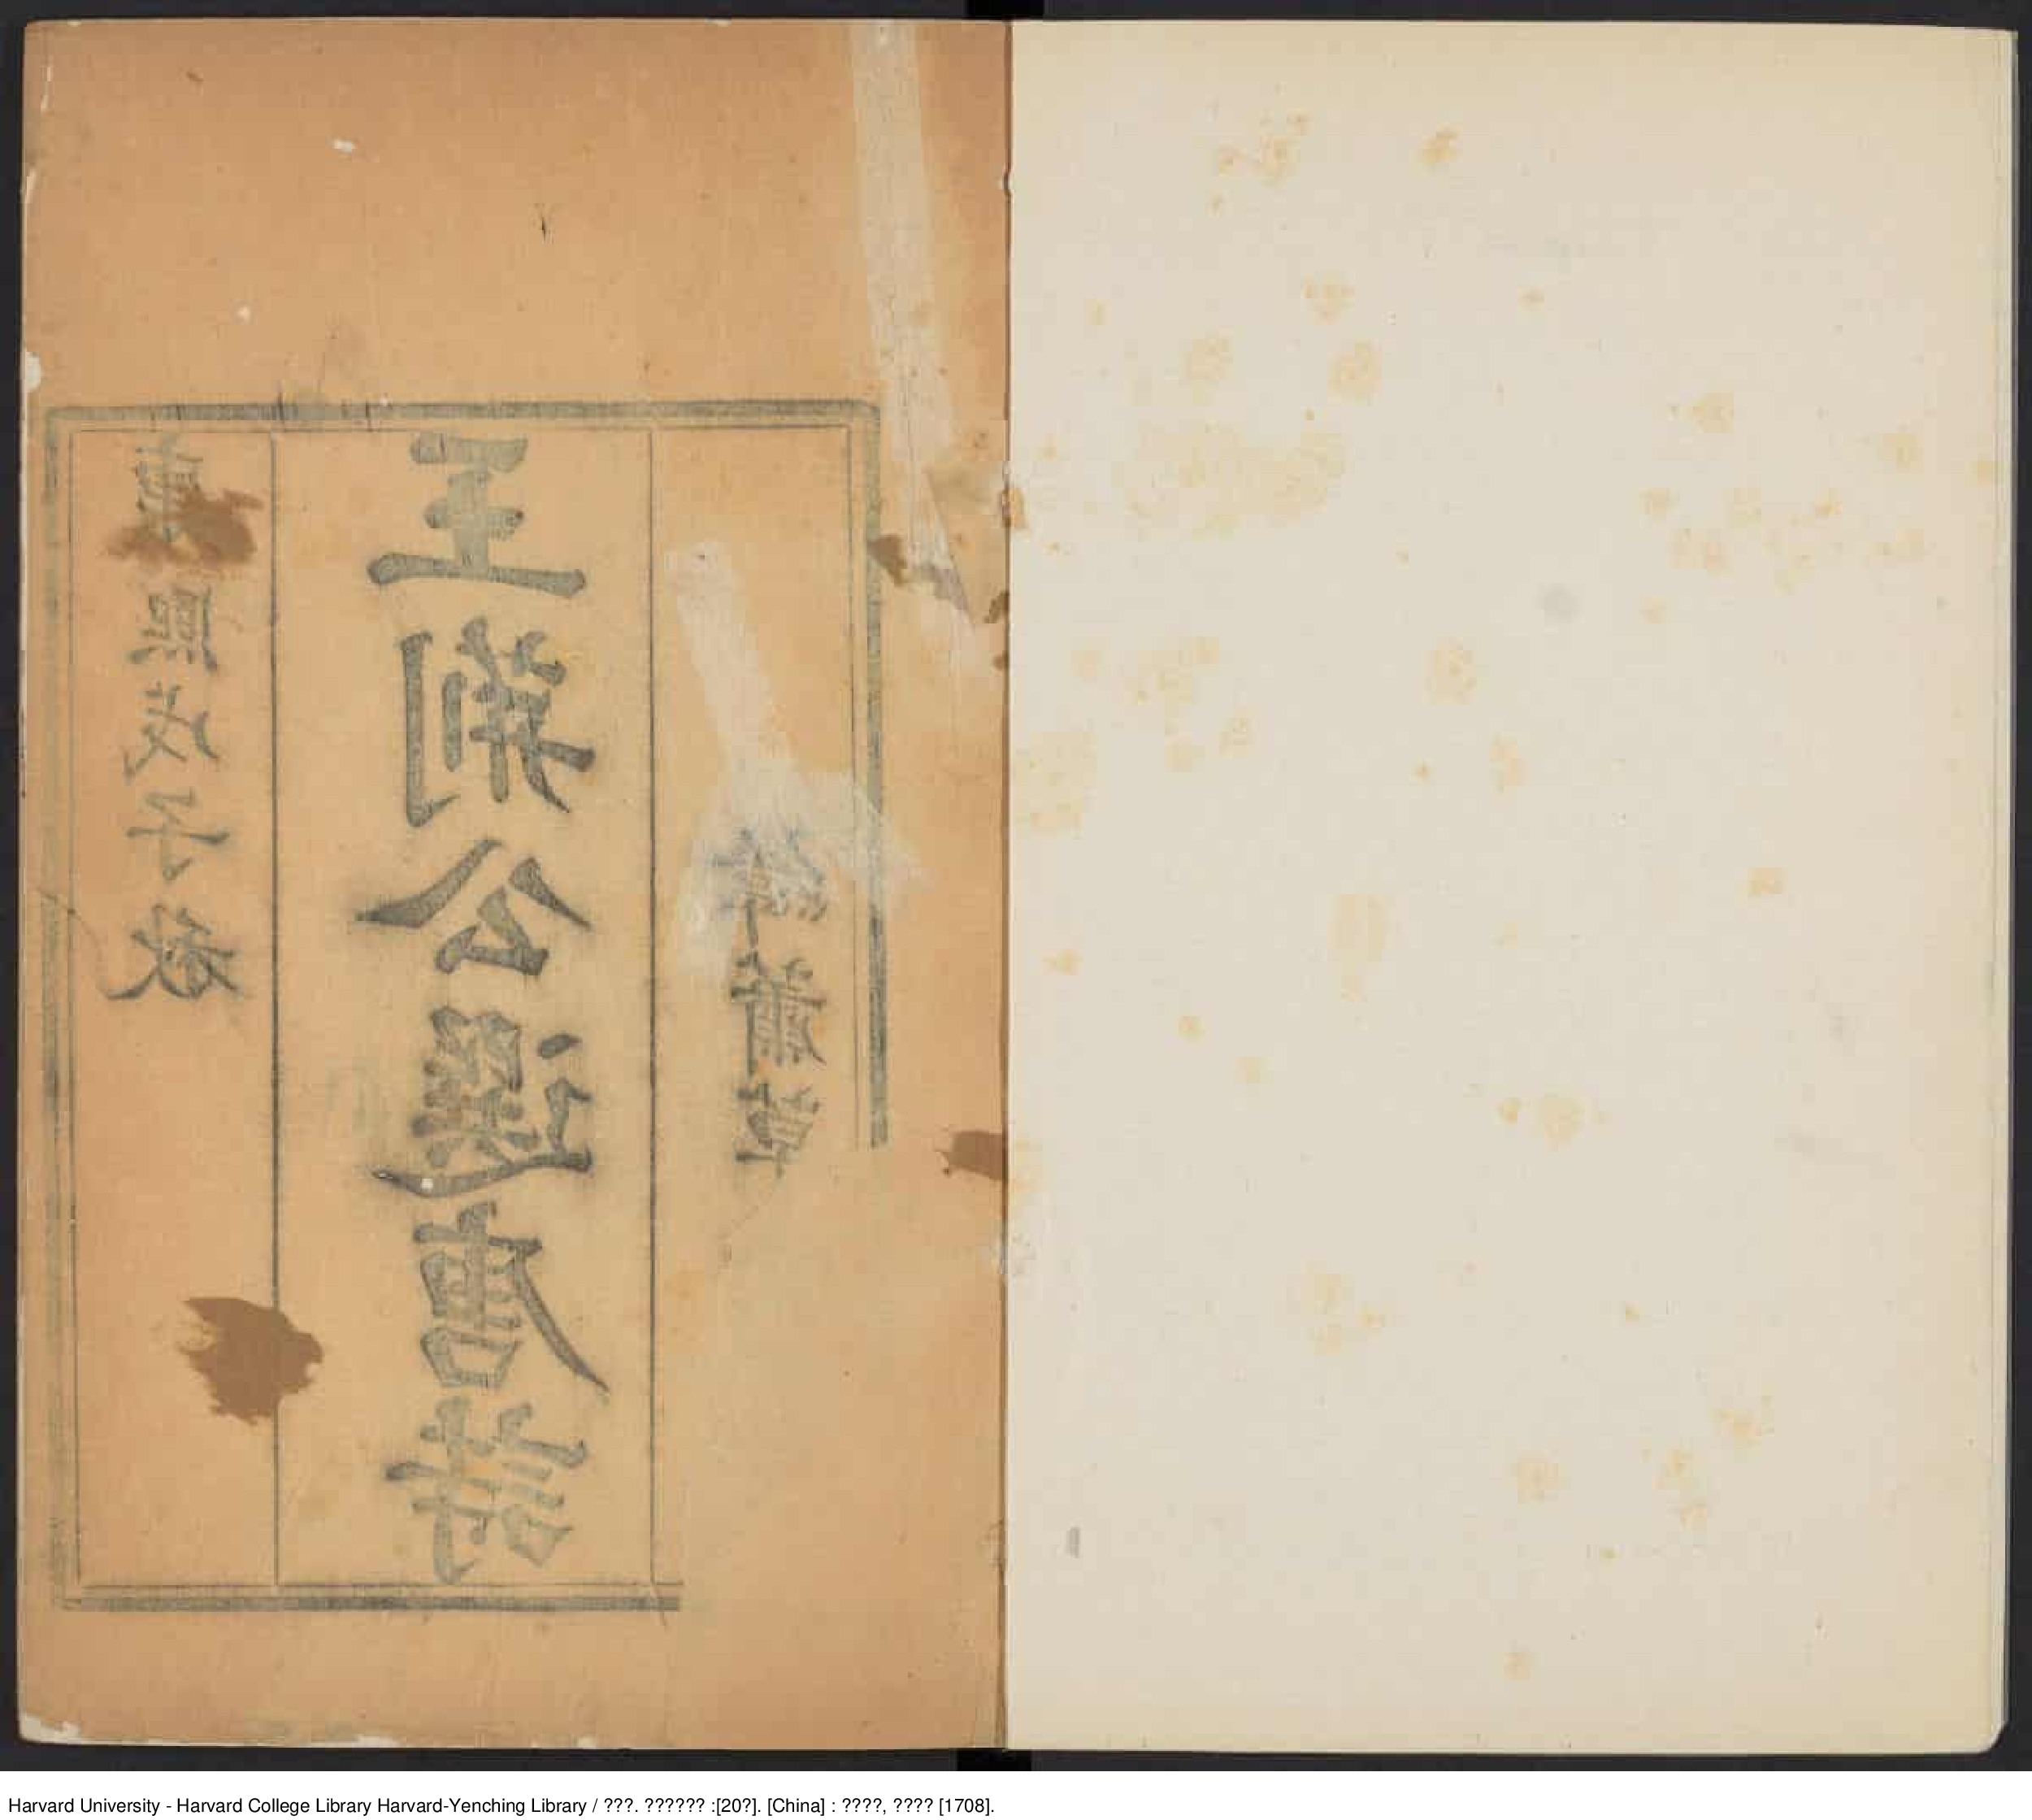 康熙戊子秋
王荊公選唐詩
緯蕭草
Harvard University - Harvard College Library Harvard-Yenching Library / ???. ?????? :[20?]. [China] : ????, ???? [1708].